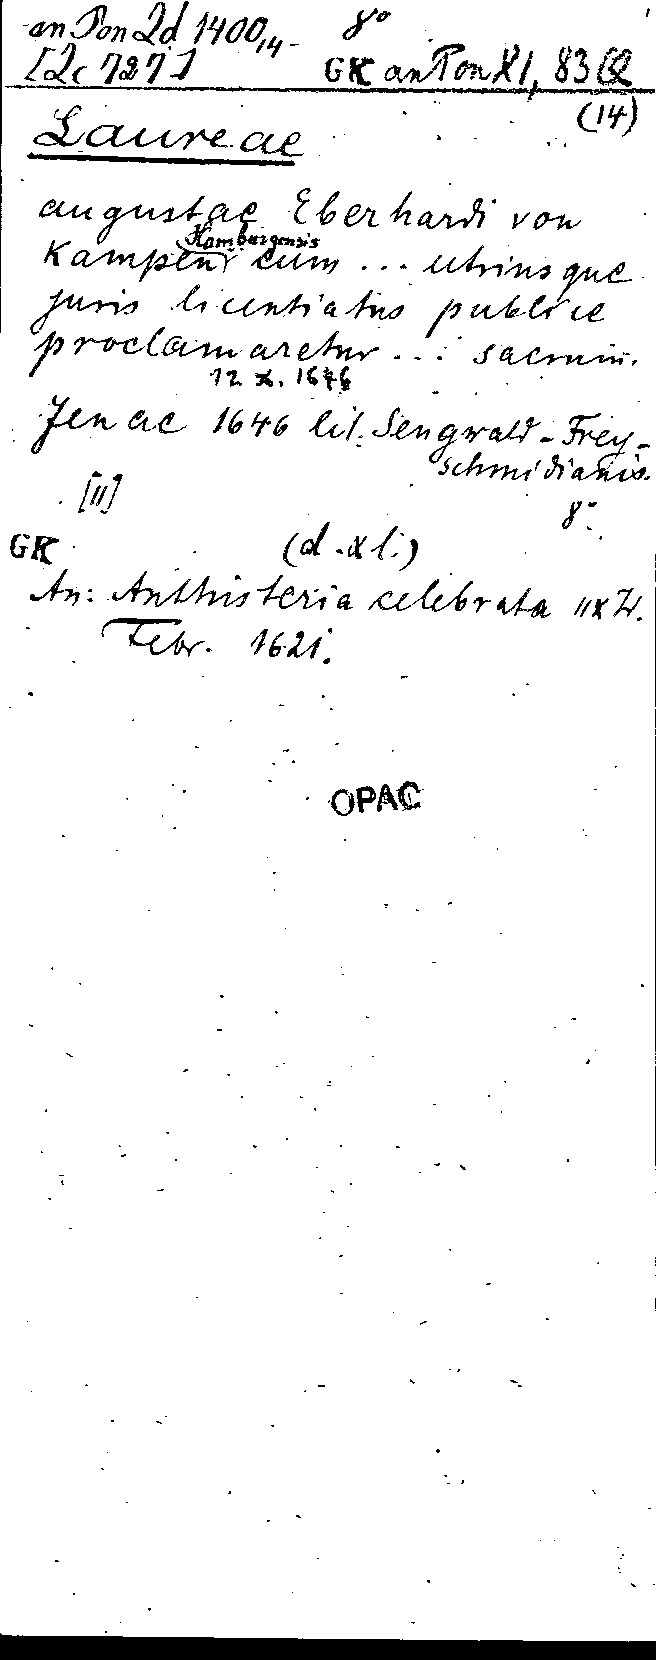 an Pon 2d 1400,14- 8°
[2c 727] GK an Pon XI, 83 Q
(14)
Laureae
augustae Eberhardi von
Hamburgensis
Kampen cum ... utriusque
juris licentiatus publice
proclamaretur ... sacrum.
12. X. 1646
Jenae 1646 lit. Sengwald-Frey-
schmidianis.
[11]
8°.
GK (d. xl.)
An: Anthisteria celebrata
Febr. 1621.
OPAC